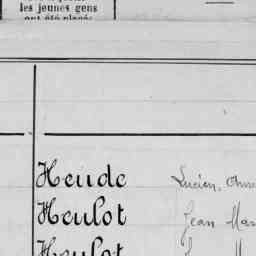 les jeunes gens
ont été placés
Heude Lucien,
Heulot Jean
Heulot